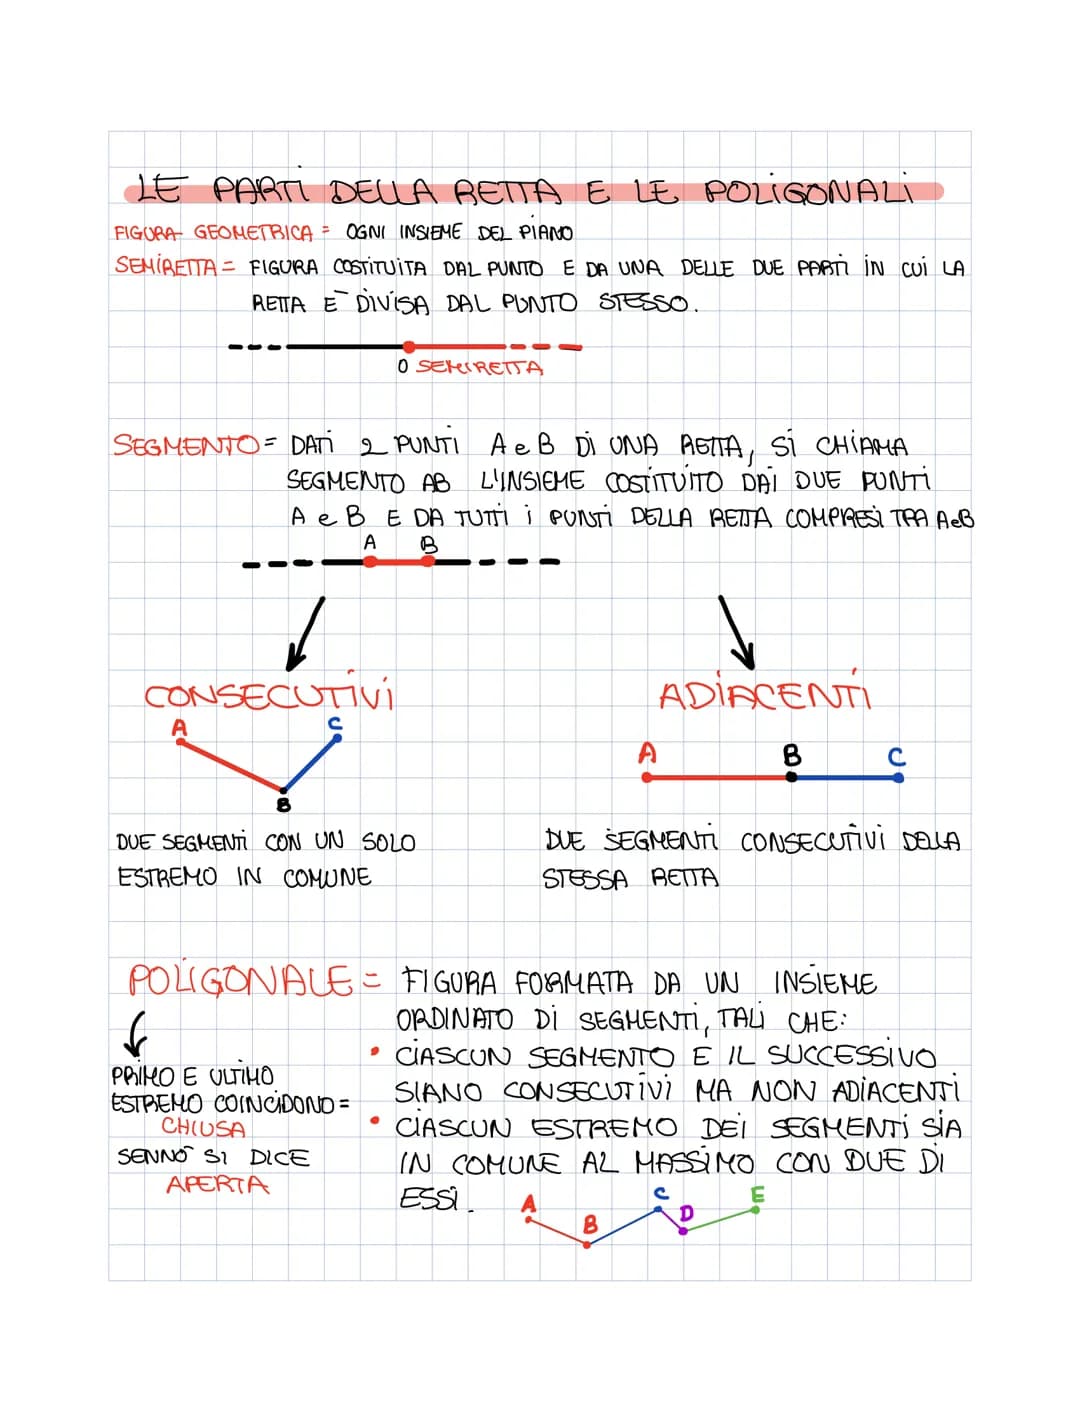 LE PARTI DELLA RETTA E LE POLIGONALI
FIGURA GEOMETRICA = OGNI INSIEME DEL PIANO
SEMIRETTA = FIGURA COSTITUITA DAL PUNTO E DA UNA DELLE DUE PARTI IN CUI LA
RETTA È DIVISA DAL PUNTO STESSO.
O SEMIRETTA
SEGMENTO = DATI 2 PUNTI A e B DI UNA RETTA, SI CHIAMA
SEGMENTO AB L'INSIEME COSTITUITO DAI DUE PUNTI
A e B E DA TUTTI I PUNTI DELLA RETTA COMPRESI TRA A e B
A B
CONSECUTIVI ADIACENTI
A C
B
A B C
DUE SEGMENTI CON UN SOLO
ESTREMO IN COMUNE
DUE SEGMENTI CONSECUTIVI DELLA
STESSA RETTA
POLIGONALE = FIGURA FORMATA DA UN INSIEME
ORDINATO DI SEGMENTI, TALI CHE:
• CIASCUN SEGMENTO E IL SUCCESSIVO
SIANO CONSECUTIVI MA NON ADIACENTI
• CIASCUN ESTREMO DEI SEGMENTI SIA
IN COMUNE AL MASSIMO CON DUE DI
ESSI.
PRIMO E ULTIMO
ESTREMO COINCIDONO =
CHIUSA
SENNÒ SI DICE
APERTA
A B C D E